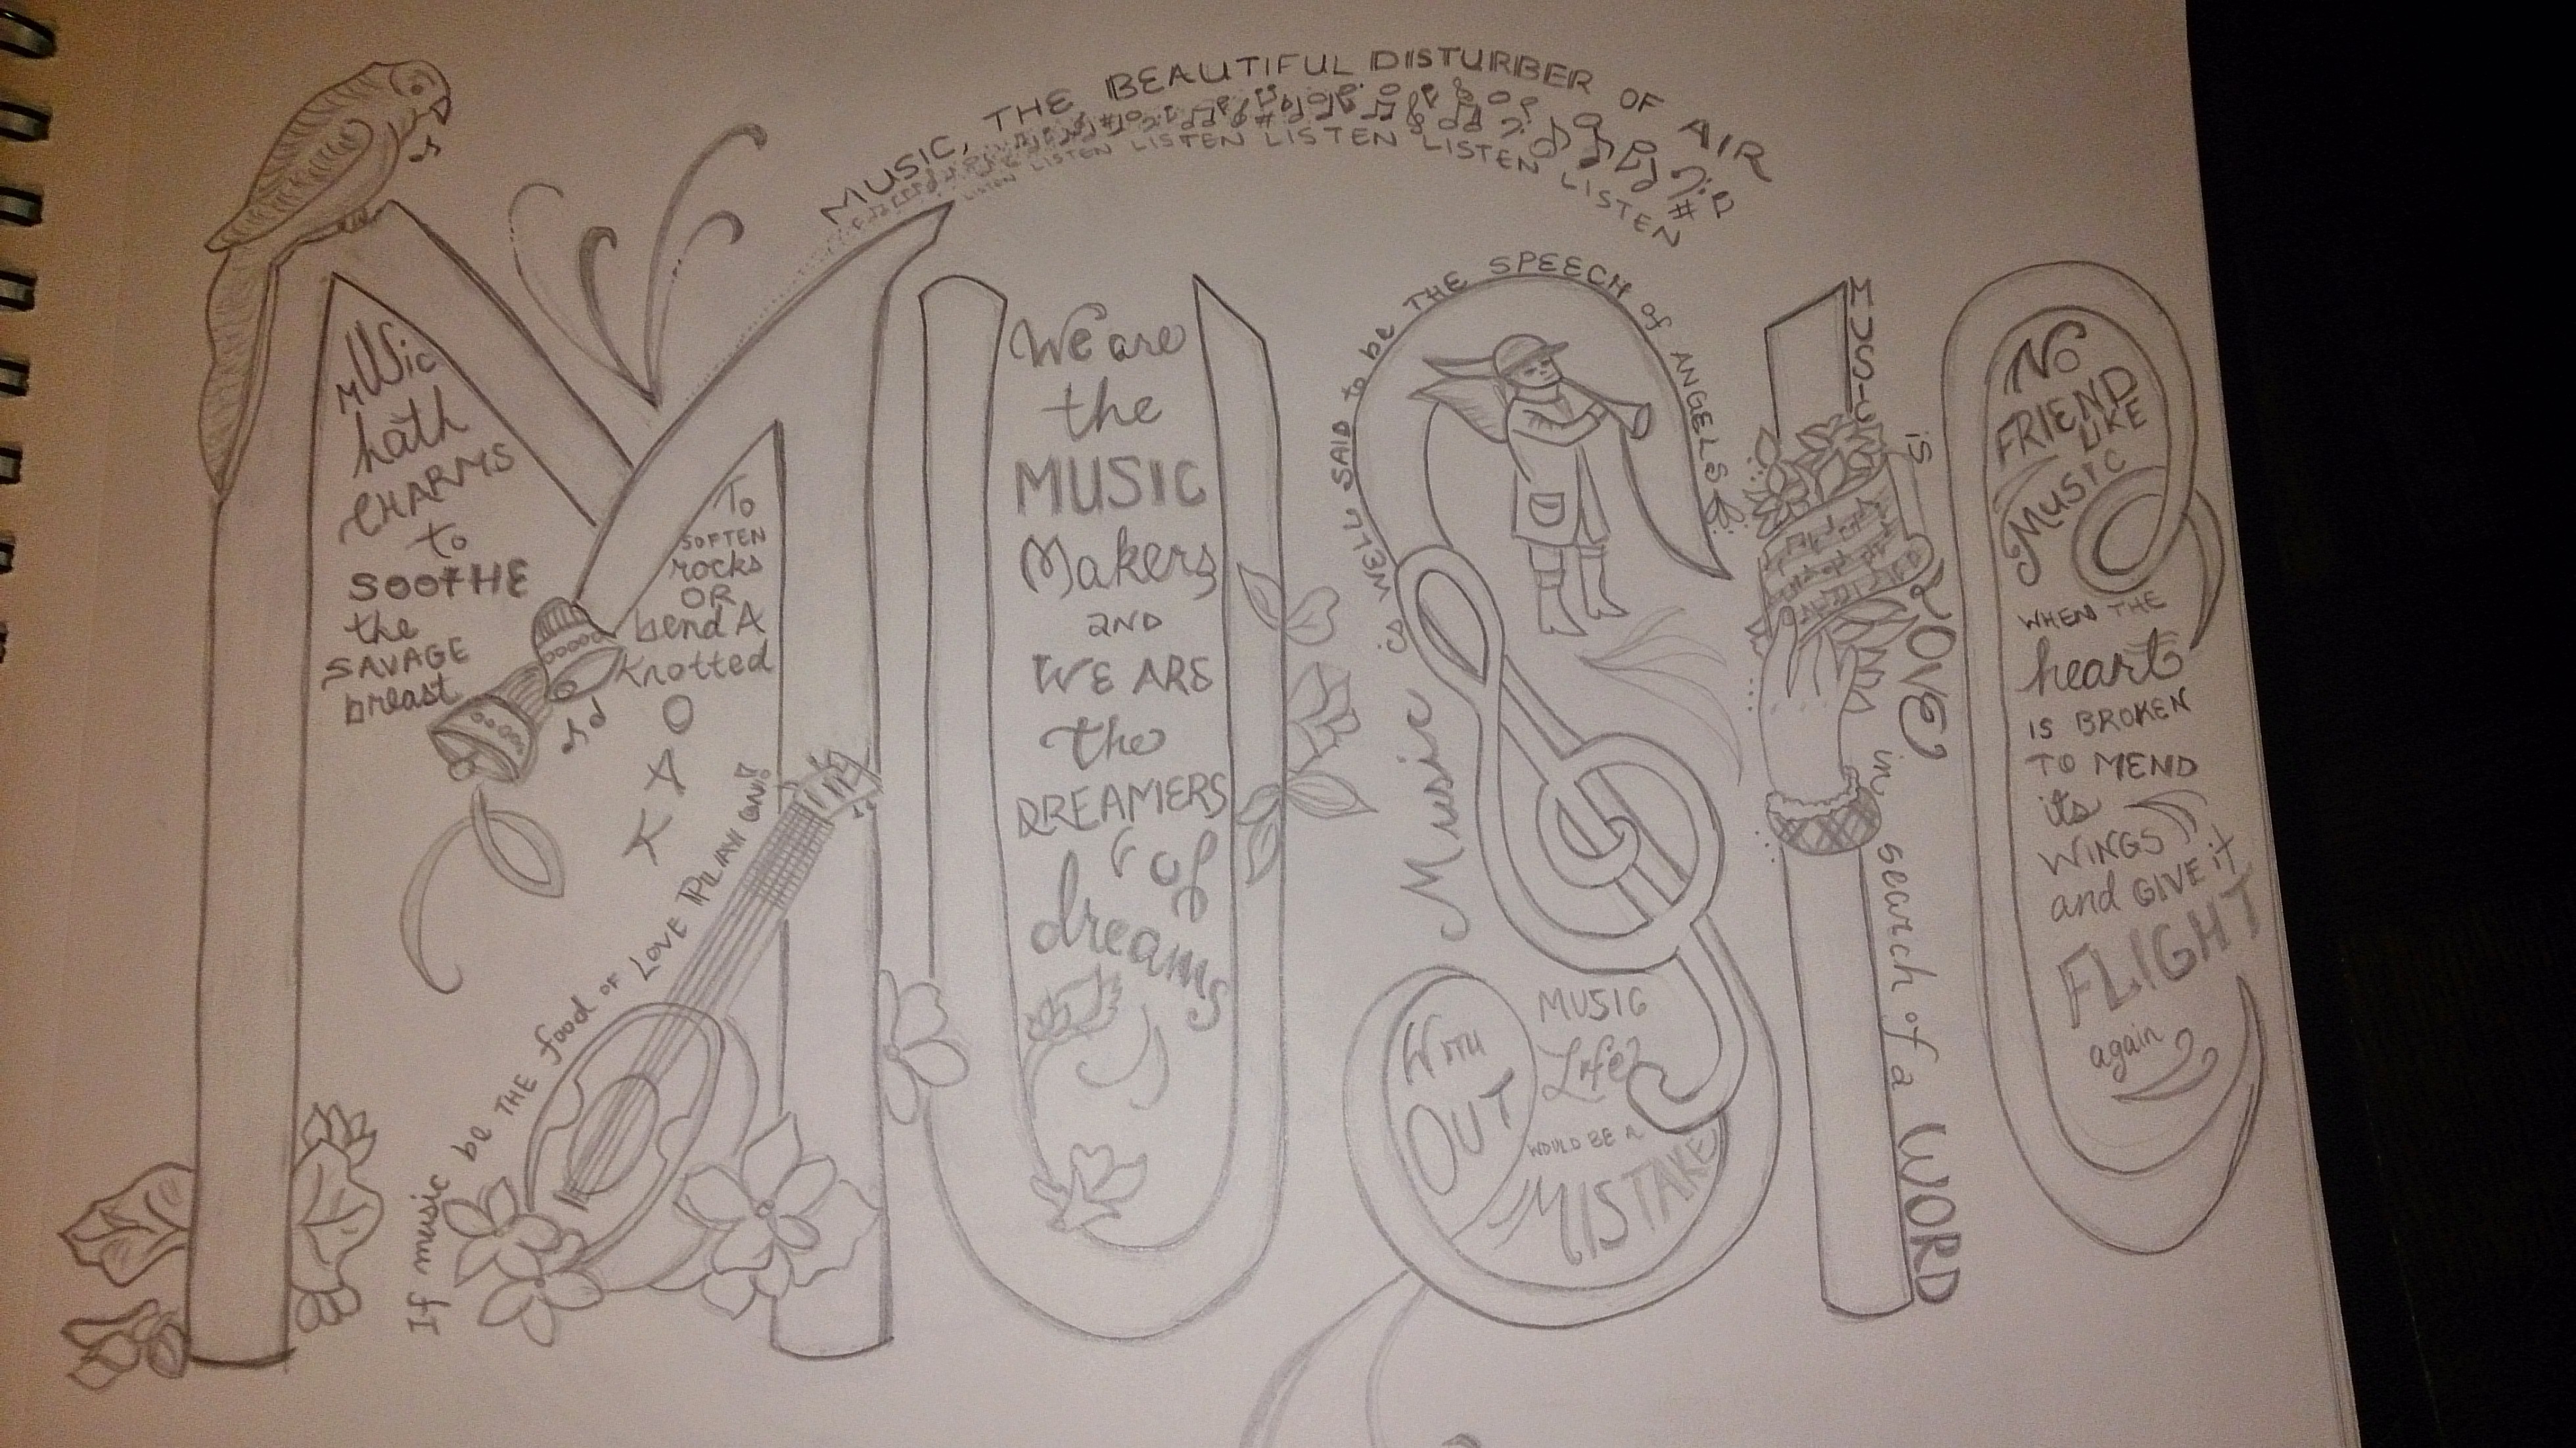 MUSIC, THE BEAUTIFUL DISTURBER OF AIR
LISTEN LISTEN LISTEN LISTEN LISTEN LISTEN LISTEN LISTEN
MUSic
hath
CHARMS
to
SOOTHE
the
SAVAGE
breast
To
SOFTEN
rocks
OR
bend A
Knotted
O
A
K
If music be THE food OF LOVE PLAY on!!
We are
the
MUSIC
Makers
AND
WE ARE
the
DREAMERS
of
dreams
Music is WELL SAID to be THE SPEECH of ANGELS
WITH
OUT
MUSIC
Life
WOULD BE A
MISTAKE
MUSIC is LOVE in search of a WORD
NO
FRIEND
LIKE
MUSIC
WHEN THE
heart
IS BROKEN
TO MEND
its
WINGS
and GIVE it
FLIGHT
again